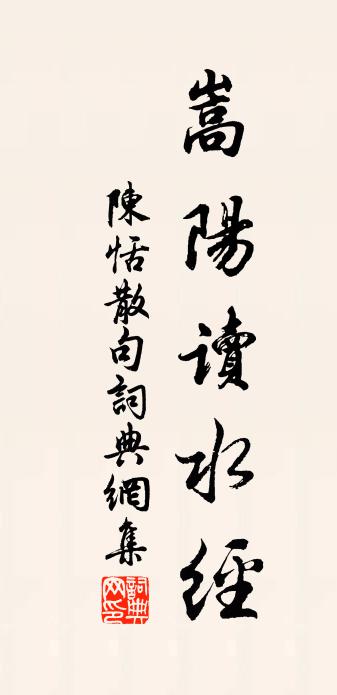 嵩陽讀水經
陳恬散句詞典網集
詞典網印